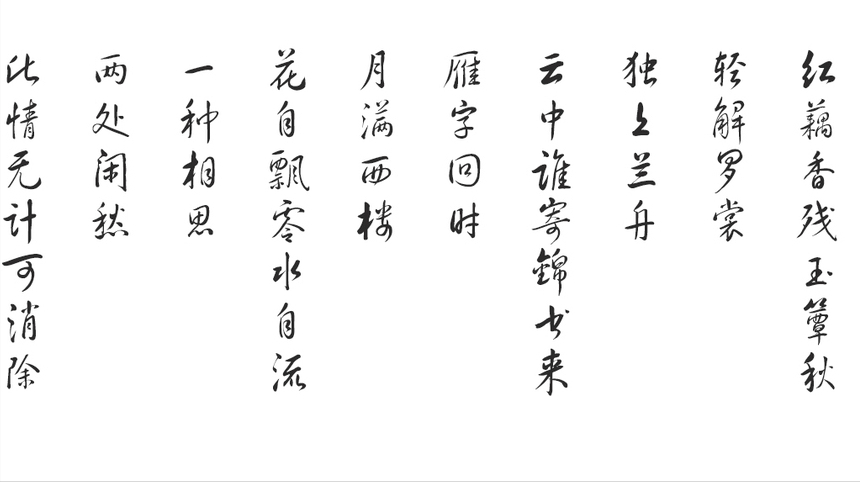 红藕香残玉簟秋
轻解罗裳
独上兰舟
云中谁寄錦书来
雁字回时
月满西楼
花自飘零水自流
一种相思
两处闲愁
此情无计可消除